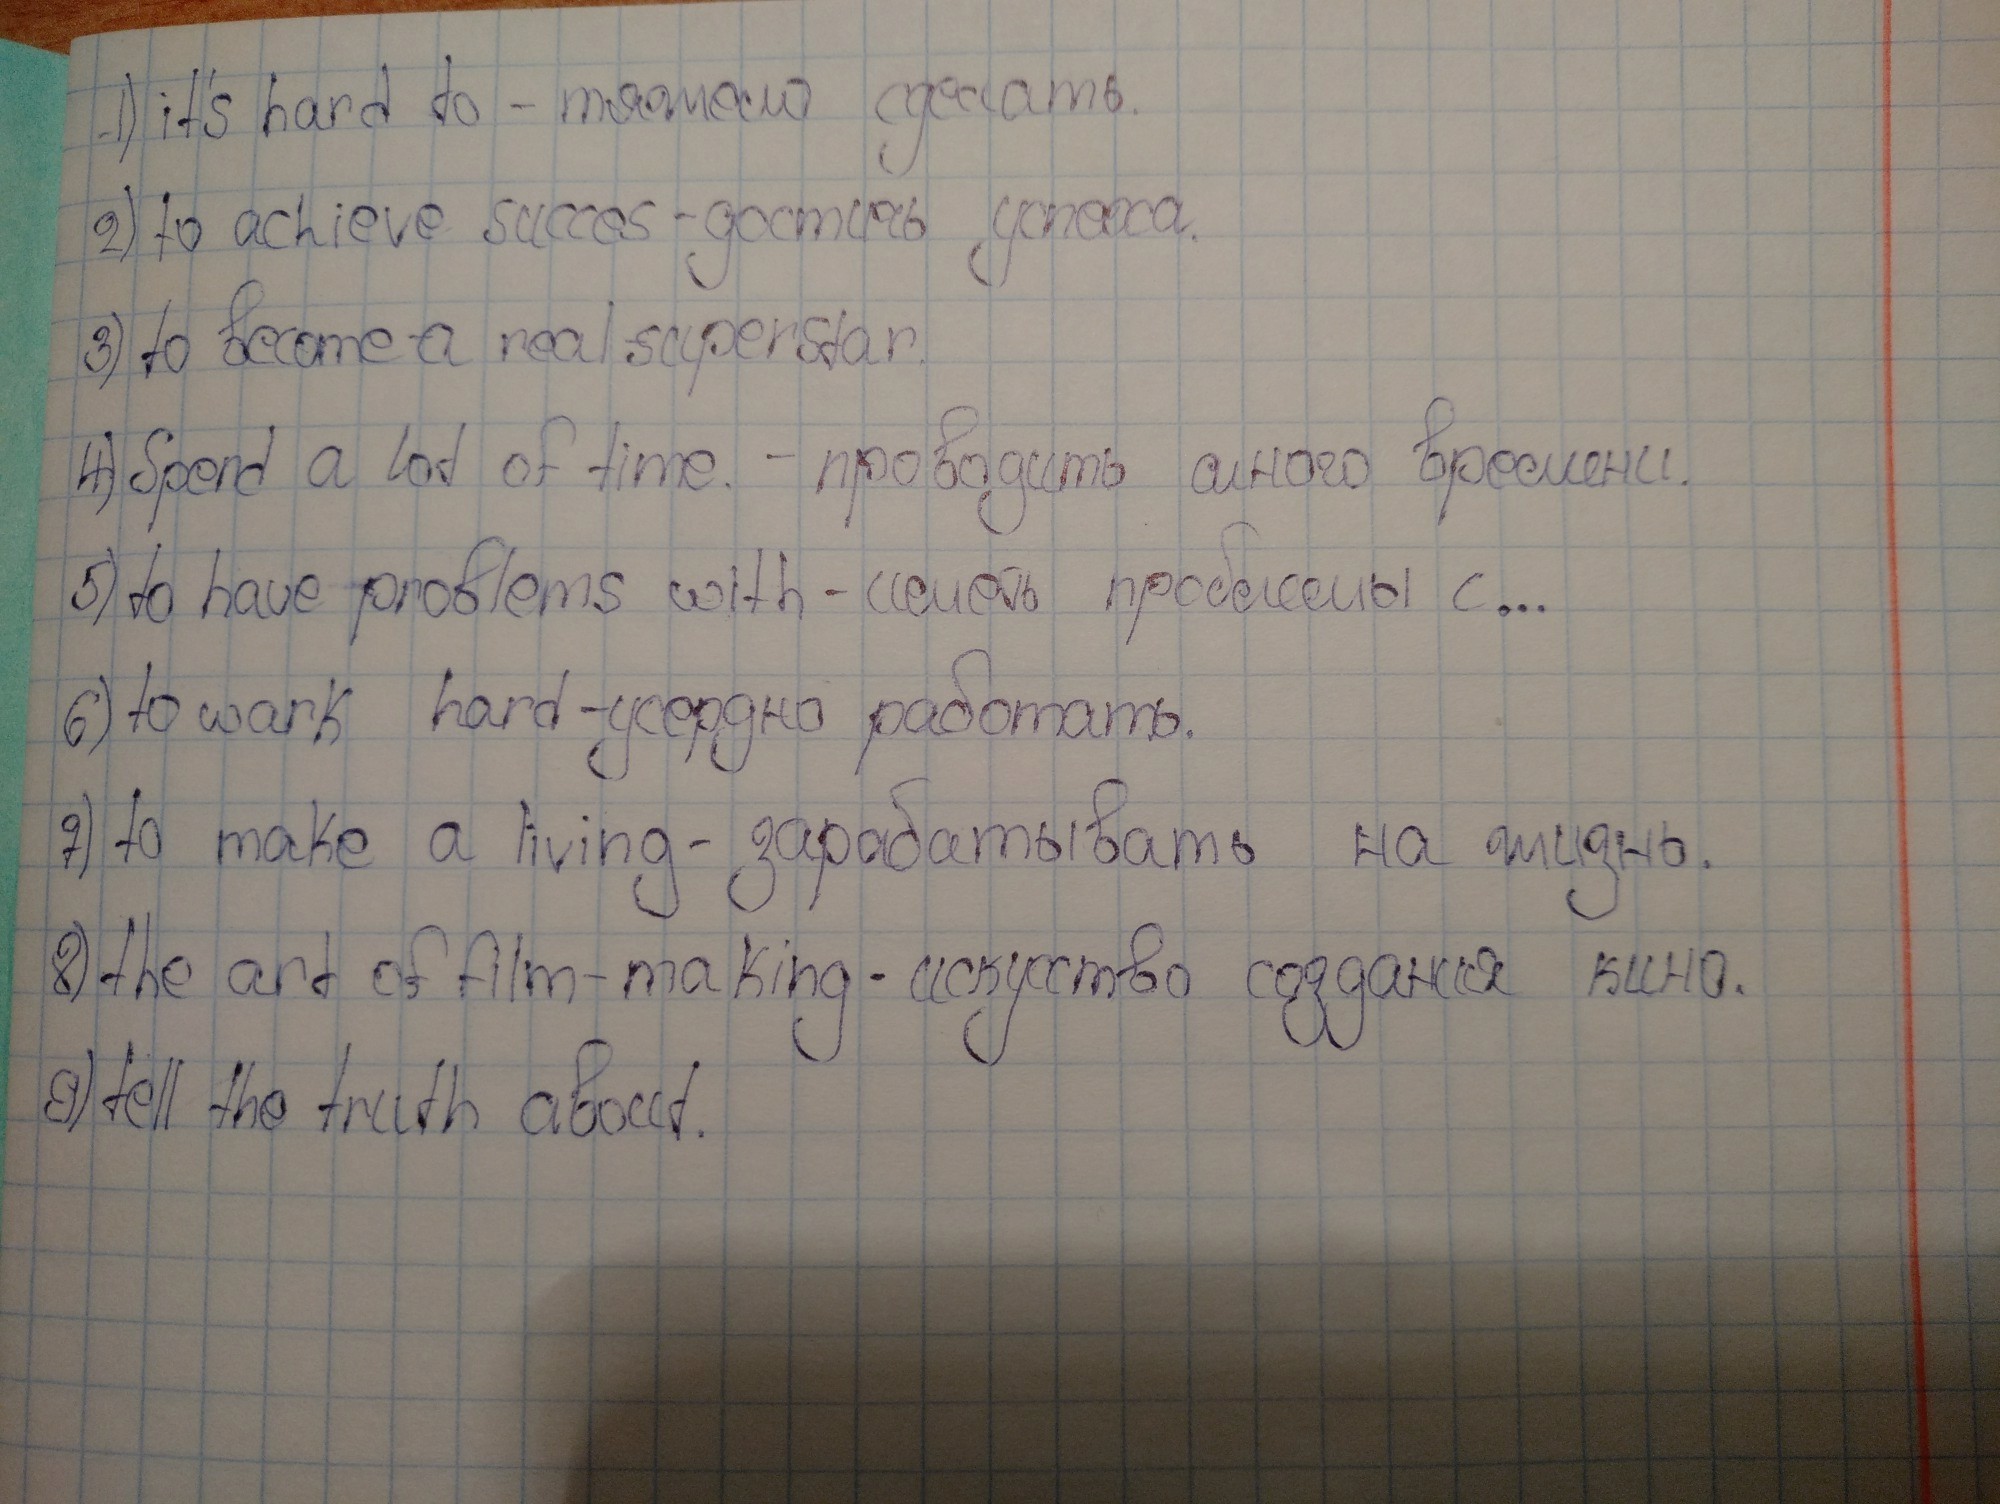 1) it's hard to - тяжело сделать.
2) to achieve succes - достичь успеха.
3) to become a real superstar.
4) Spend a lot of time. - проводить много времени.
5) to have problems with - иметь проблемы с...
6) to wark hard - усердно работать.
7) to make a living - зарабатывать на жизнь.
8) the art of film-making - искусство создания кино.
9) tell the truth about.